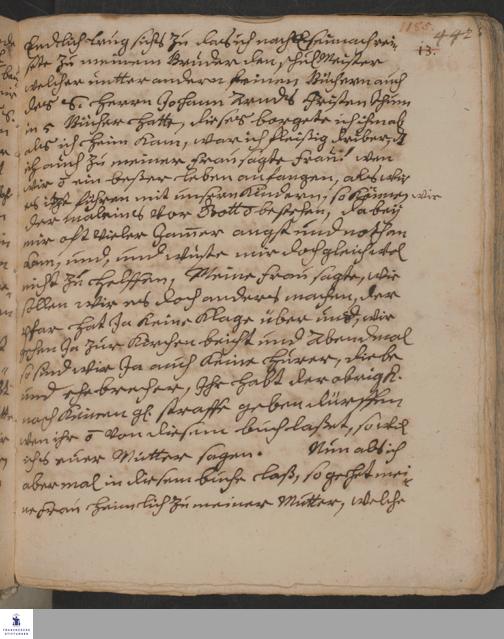 1155. 442
13.
Endtlich trug sichs zu das ich nach Eisenach rei-
sete zu meinem Bruder den schul Meister
welcher untter andern seinen Büchern auch
des S. Herrn Johann Arnds Christenthum
in 5 Bücher hatte, dieses borgete ich ihm ab
als ich heim kam, war ich fleißig drüber,
ich auch zu meiner Frau sagte Frau wen
wir ō ein beßer leben anfangen, als wir
es itzt führen mit unsern Kindern, so können wir
der maleins vor Gott ō bestehen, da bey
mir offt vieler Jammer angst und nothen
kam, und, und wuste mir doch gleichwol
nicht zu helffen, Meine Frau sagte, wie
sollen wir es doch anders machen, der
Pfar hat Ja keine Klage über uns, wir
gehen Ja zur Kirchen beicht und Abendmal
so sind wir Ja auch keine Hurer, diebe
und ehebrecher, Ihr habt der obrigk.
noch keinen gl. straffe geben dürffen
wen ihr ō von diesem buch laßet, so wil
ichs euer Mutter sagen. Nun als ich
abermal in diesem buche laß, so gehet mei
ne Frau heimlich zu meiner Mutter, welche
FRANCKESCHE
STIFTUNGEN